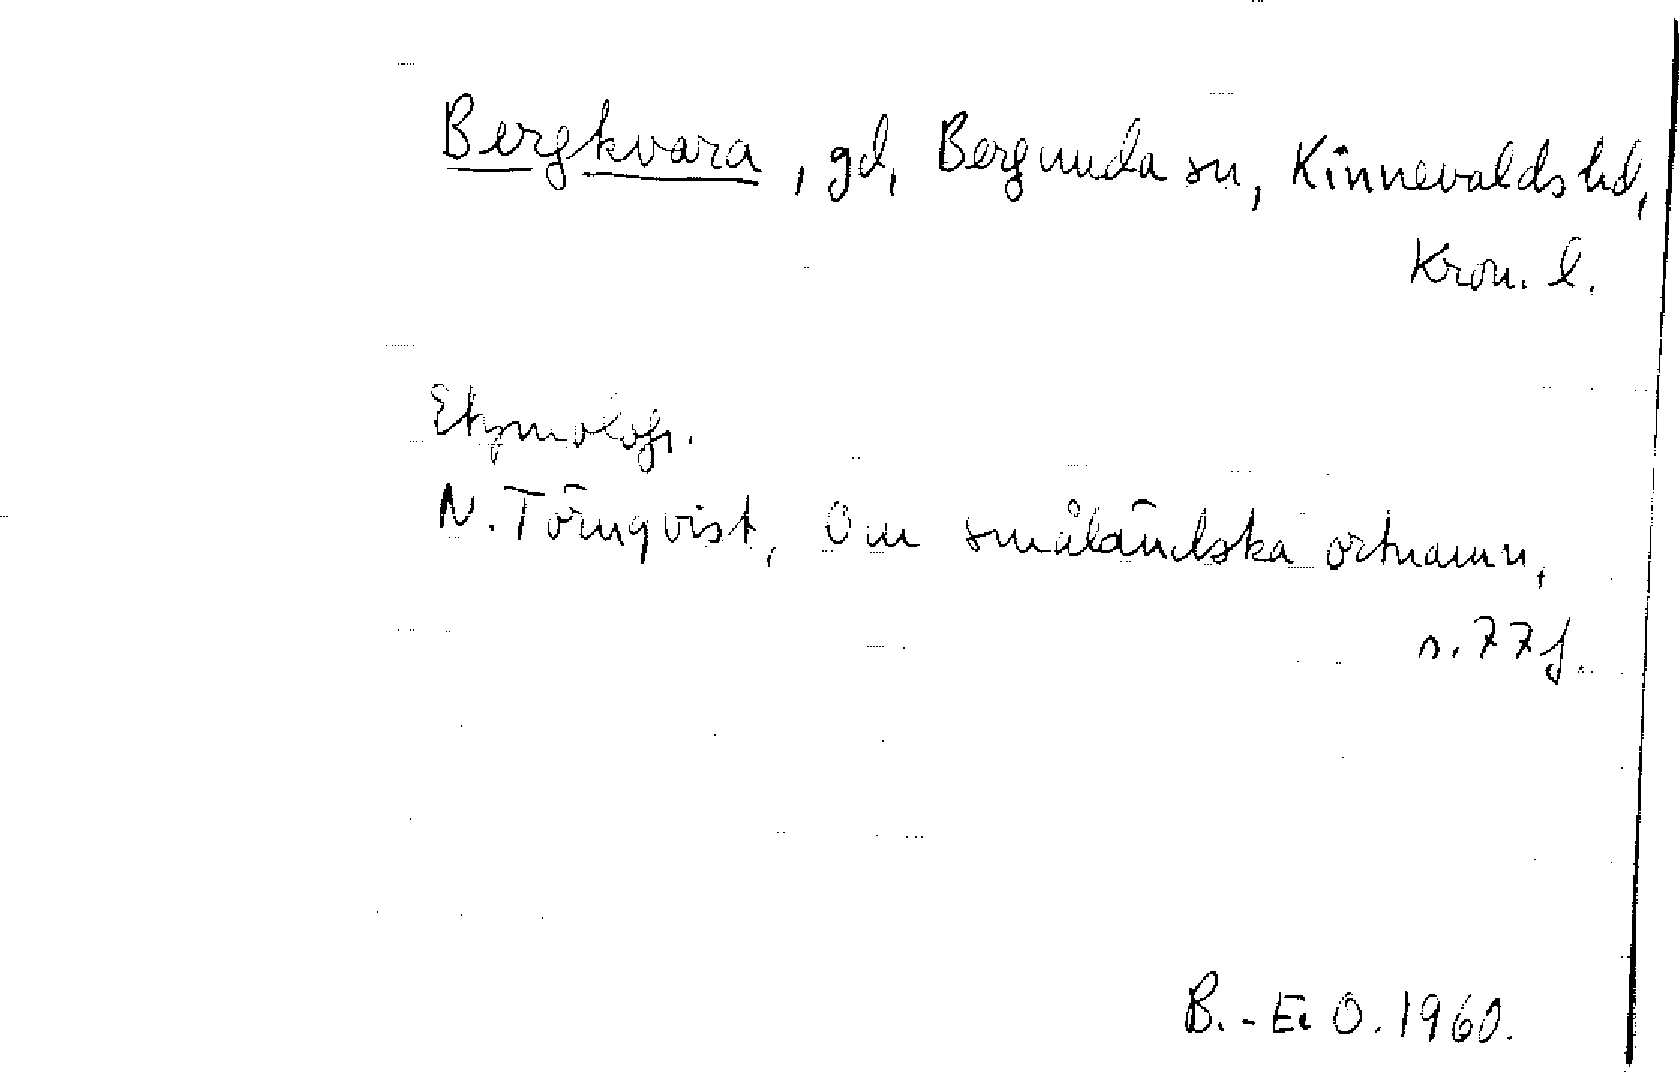 Bergkvara, gd, Bergunda sn, Kinnevalds hd,
Kron. l.
Etymologi.
N. Törnqvist, Om småländska ortnamn,
s. 77 f.
B.-E. O. 1960.